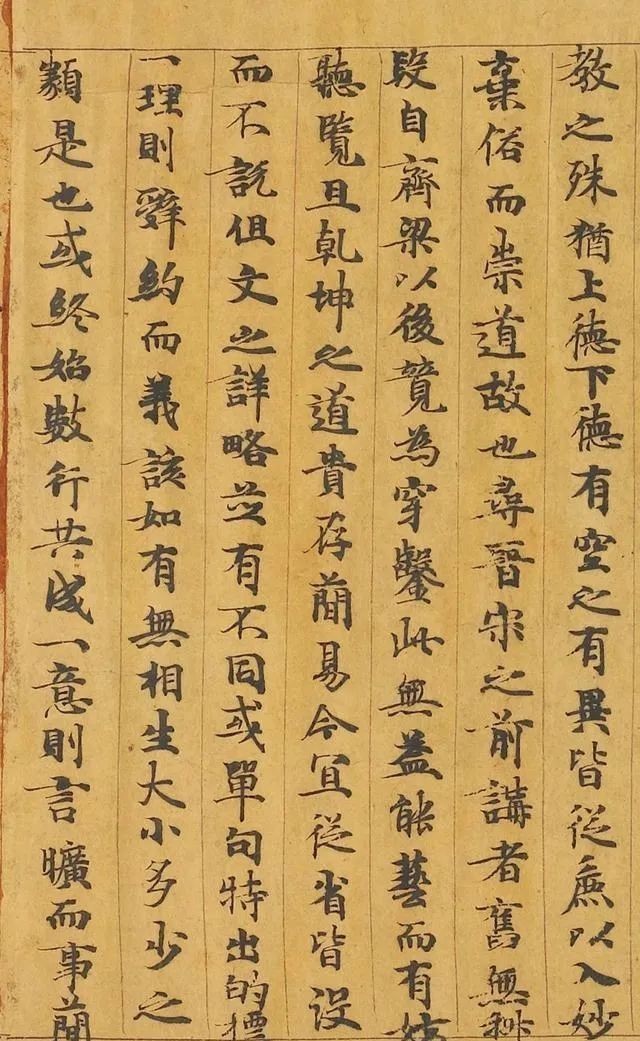 教之殊猶上德下德有空之有異皆從麁以入妙
棄俗而崇道故也尋晉宋之前講者舊無科
段自齊梁以後競為穿鑿此無益能藝而有妨
聽覽且乾坤之道貴存簡易今宜從省皆没
而不説但文之詳略並有不同或單句特出的標
一理則辤約而義該如有無相生大小多少之
類是也或終始數行共成一意則言曠而事簡